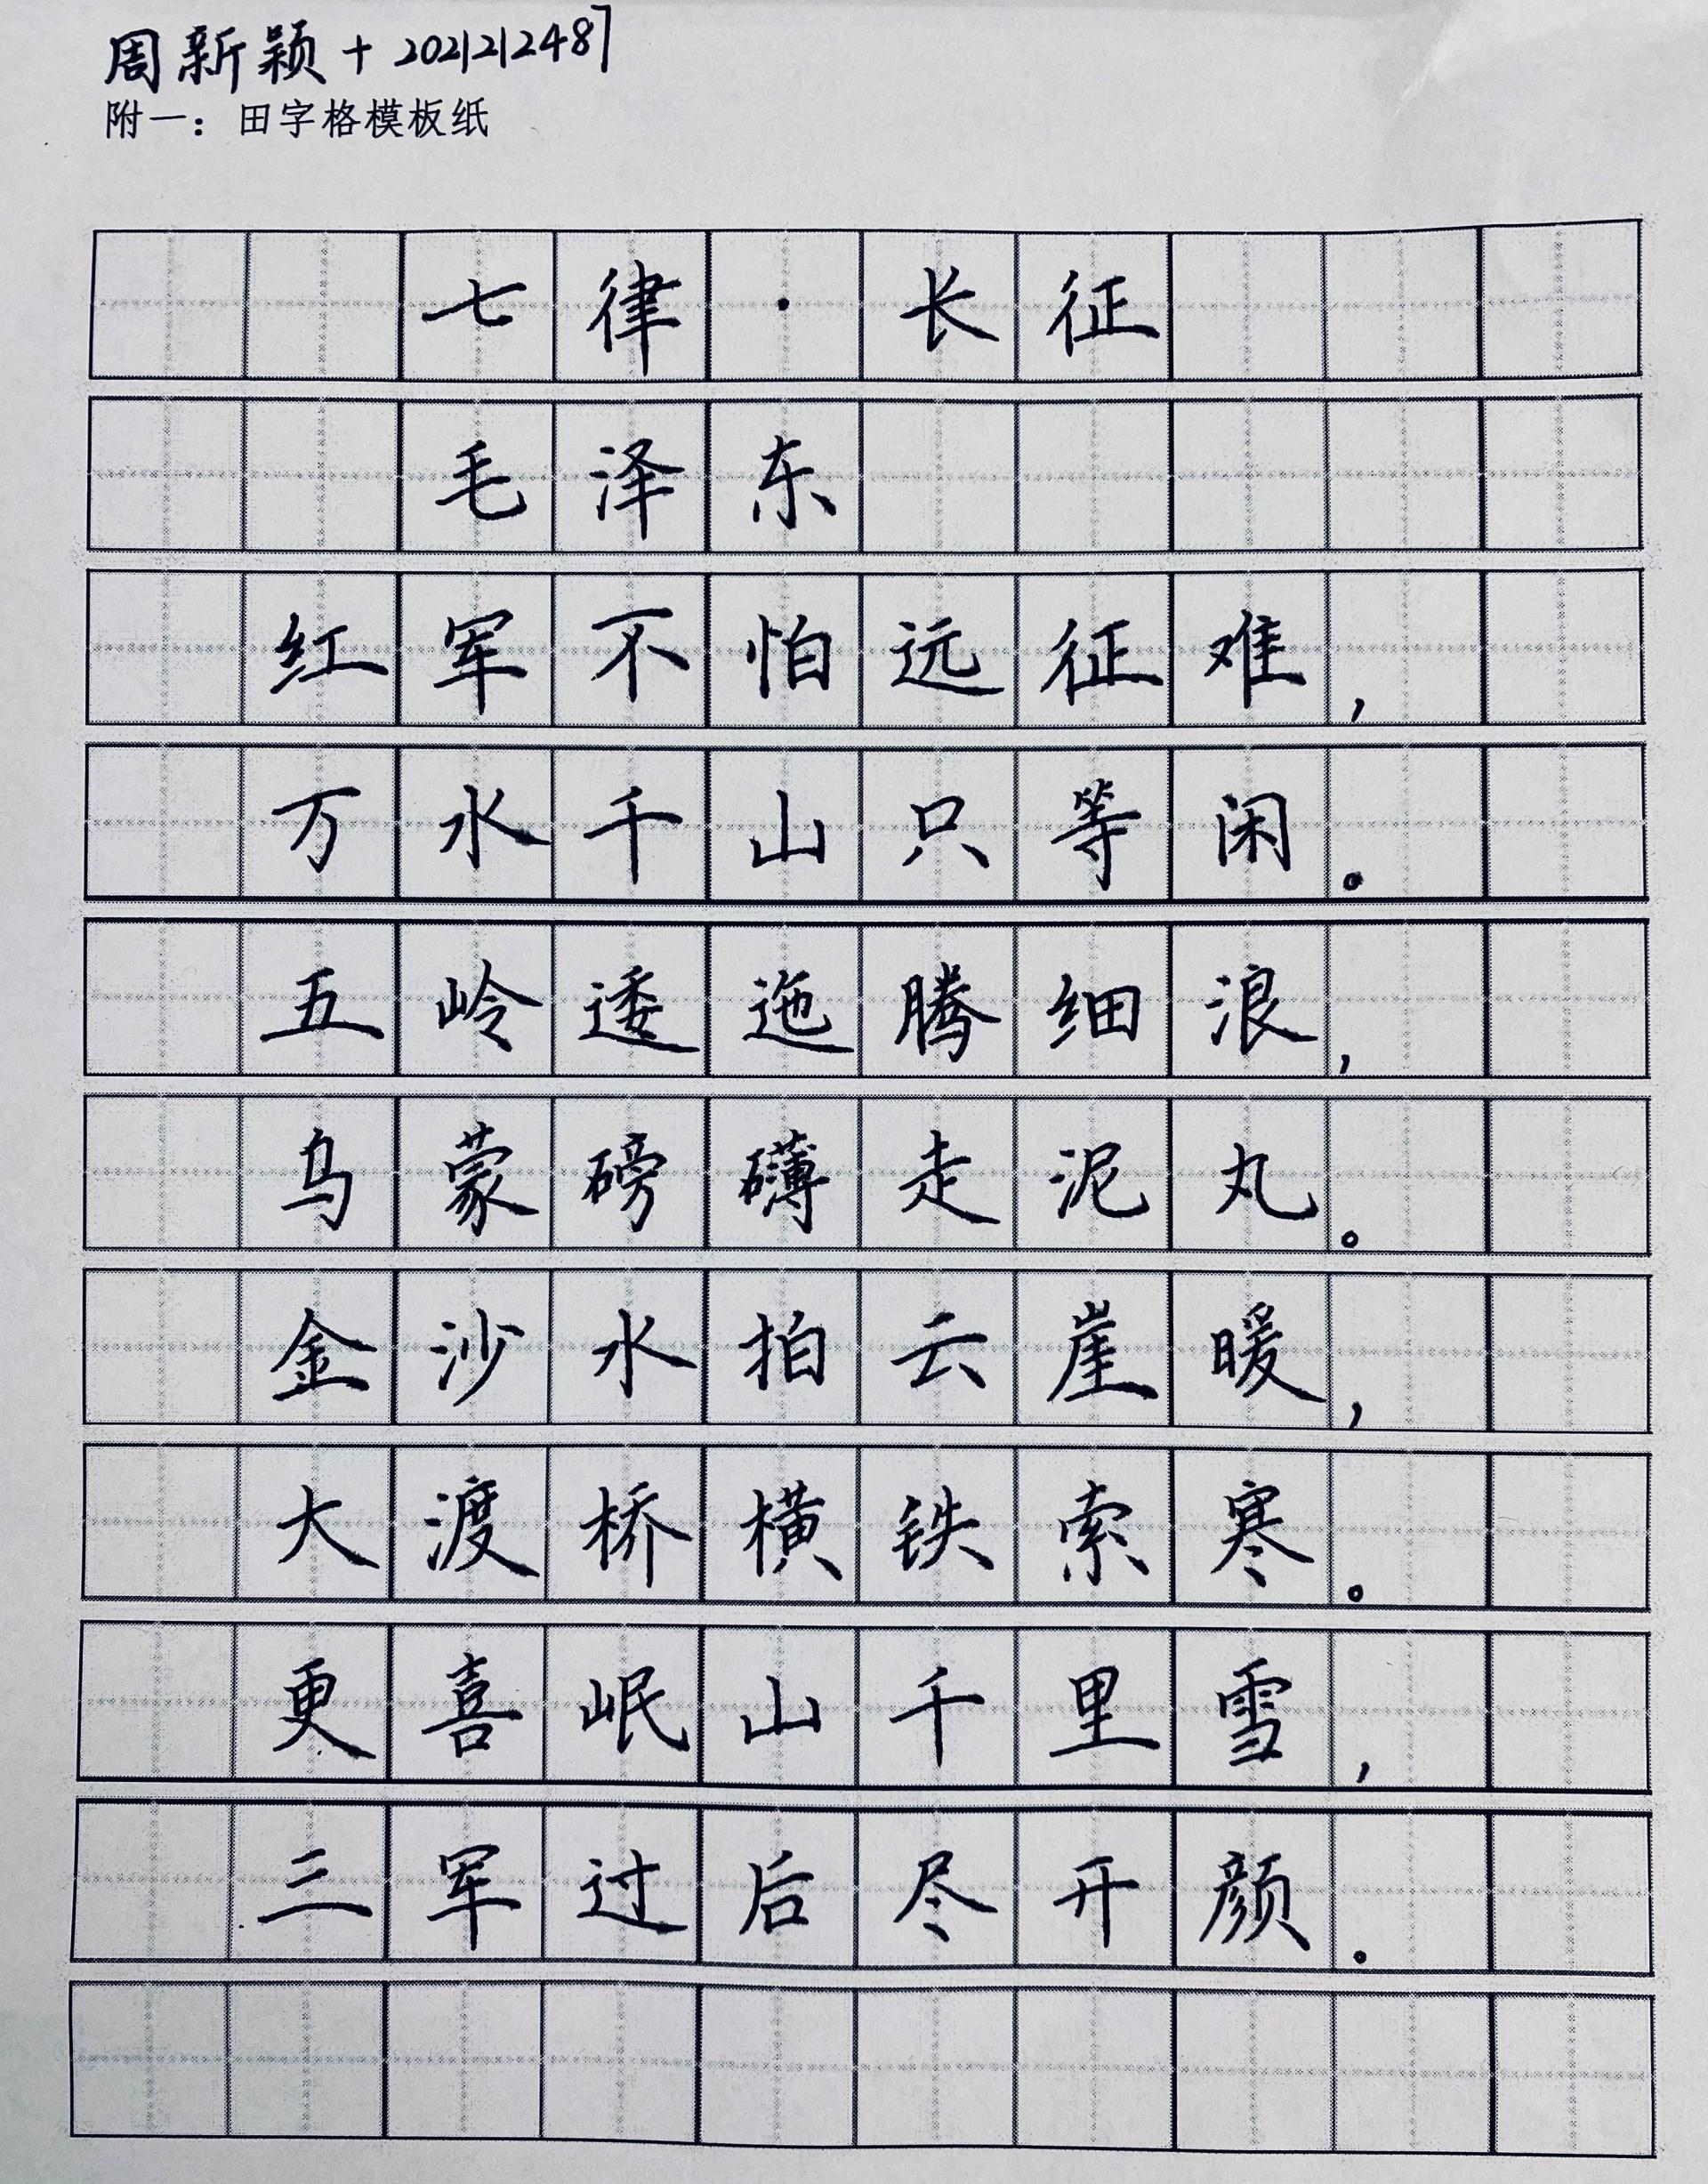 周新颖+2021212487
附一：田字格模板纸
七律·长征
毛泽东
红军不怕远征难，
万水千山只等闲。
五岭逶迤腾细浪，
乌蒙磅礴走泥丸。
金沙水拍云崖暖，
大渡桥横铁索寒。
更喜岷山千里雪，
三军过后尽开颜。